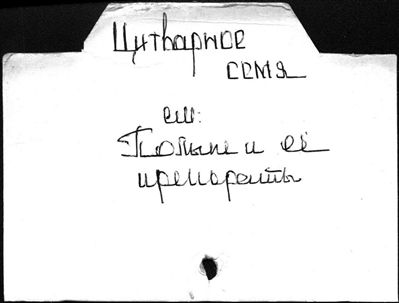 Цитварное
семя
см:
Полынь и её
препараты